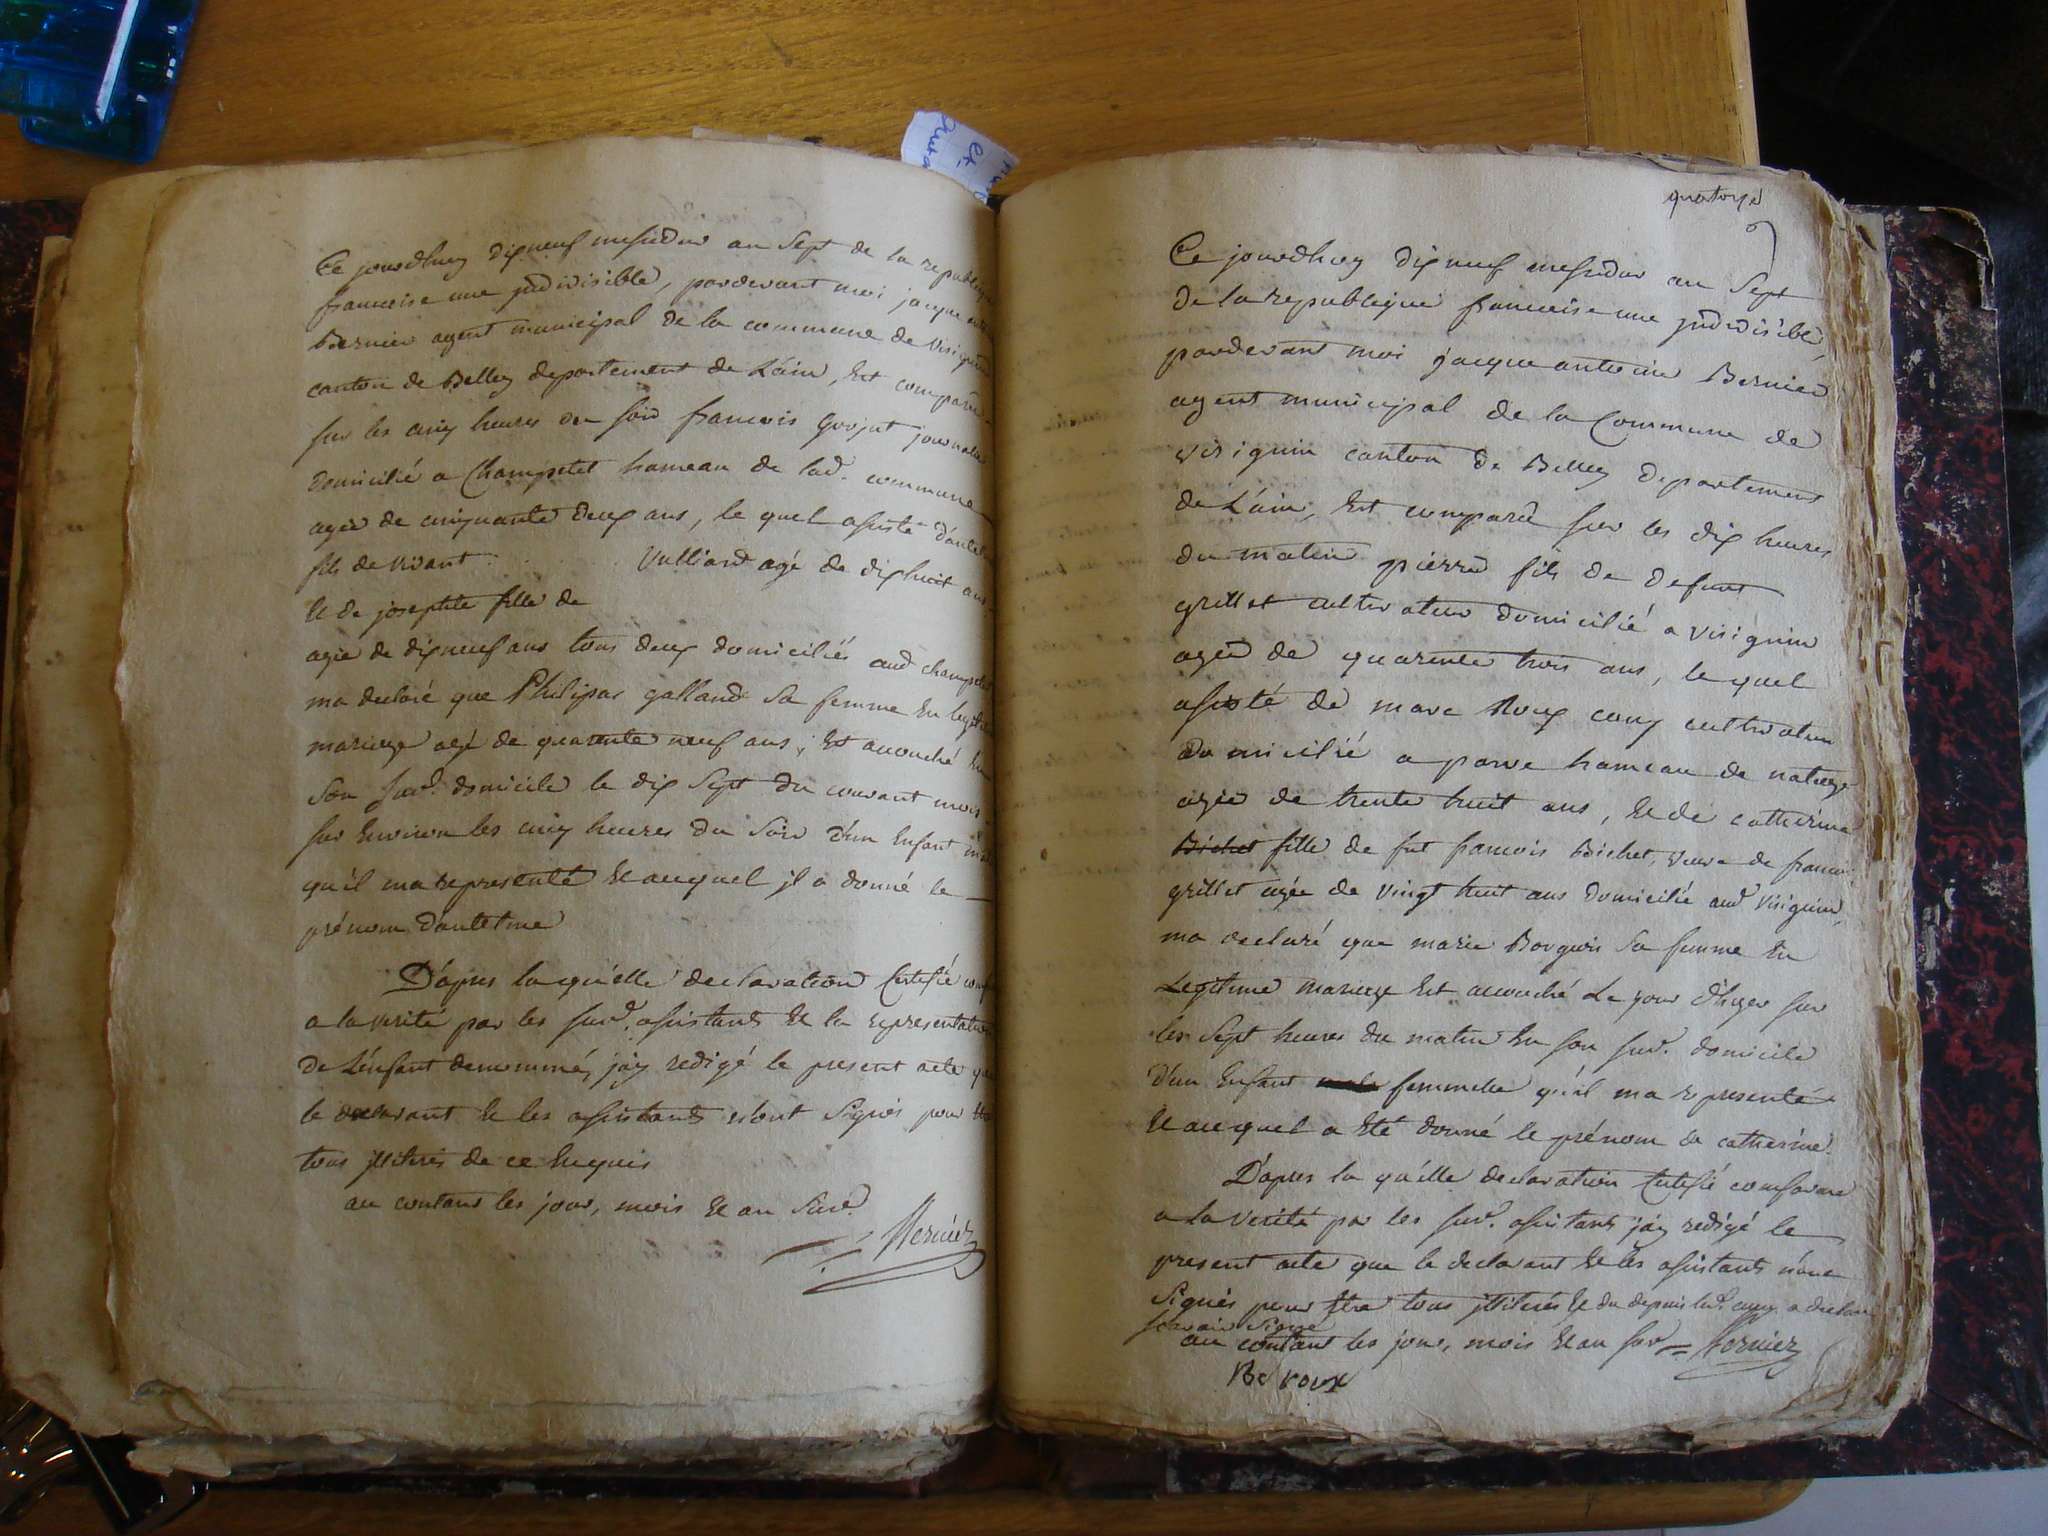 Ce jourdhuy dix neuf messidor an Sept de la republique
francoise une jndivisible, pardevant moi jacque
Bernier agent municipal de la commune de Virignin
canton de Belley departement de L'ain, Est comparu
sur les cinq heures du soir francois Goujat journalier
domicilié a Champtel hameau de lad. commune
agée de cinquante deux ans, le quel assisté d'antelme
fils de vivant Vulliard agé de dixhuit ans
Et de josephte fille de
agée de dixneuf ans tous deux domiciliés aud champtel
ma declaré que Philipas galland sa femme En legitime
mariage agé de quarente neuf ans, Est acouché En
son susd. domicile le dix Sept du courant mois
sur Environ les cinq heures du soir d'un Enfant male
qu'il ma representé Et auquel jl a donné le
prénom d'antelme
D'apres la qu'elle declaration Certifié conforme
a la verité par les susd. assistants Et la representation
de L'enfant denommé, j'ay redigé le present acte que
le declarant Et les assistants n'ont Signés pour Etre
tous jlliterés de ce Enquis
au contant les jour, mois Et an susd.
Bernier
quatorze
Ce jourdhuy dix neuf messidor an Sept
de la republique francoise une jndivisible,
pardevant moi jacque antoine Bernier
agent municipal de la Commune de
virignin canton de Belley departement
de L'ain, Est comparu sur les dix heures
du matin pierre fils de defunt
grillet cultivateur domicilié a virignin
agée de quarente trois ans, le quel
assisté de marc Roux cony cultivateur
domicilié a parve hameau de nattage
agée de trente huit ans, Et de catherine
Bichet fille de fut francois Bichet, veuve de francois
grillet agée de vingt huit ans domicilié aud virignin,
ma declaré que marie Bourgeois sa femme En
Legitime mariage Est acouché Le jour d'hyer sur
les Sept heures du matin En son susd. domicile
d'un Enfant male femmelle qu'il ma representé
Et auquel a Eté donné le prénom de catherine.
D'apres la qu'elle declaration Certifié conforme
a la verité par les susd. assistants j'ay redigé le
present acte que le declarant Et les assistants n'ont
Signés pour Etre tous jlliterés Et du depuis led. cony a declaré
scavoir Signé
au contant les jour, mois Et an susd Bernier
Roux